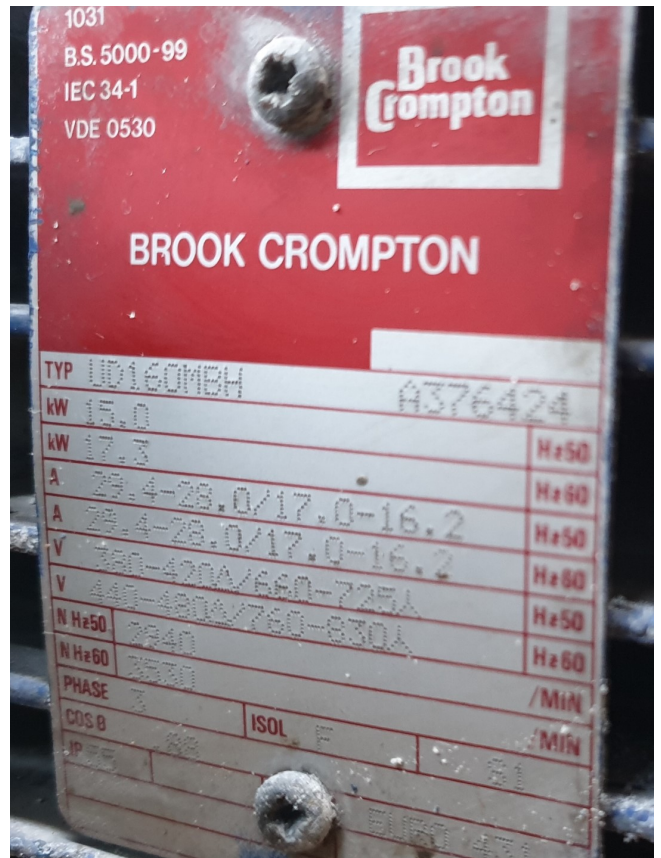 1031
B.S. 5000-99
IEC 34-1
VDE 0530
Brook
Crompton
BROOK CROMPTON
TYP UD160MBH A376424
kW 15.0 Hz50
kW 17.3 Hz60
A 29.4-28.0/17.0-16.2 Hz50
A 29.4-28.0/17.0-16.2 Hz60
V 380-420Δ/660-725Y Hz50
V 440-480Δ/760-830Y Hz60
N Hz50 /MIN
N Hz60 3530 /MIN
PHASE 3 ISOL F S1
COS θ .88
IP 55